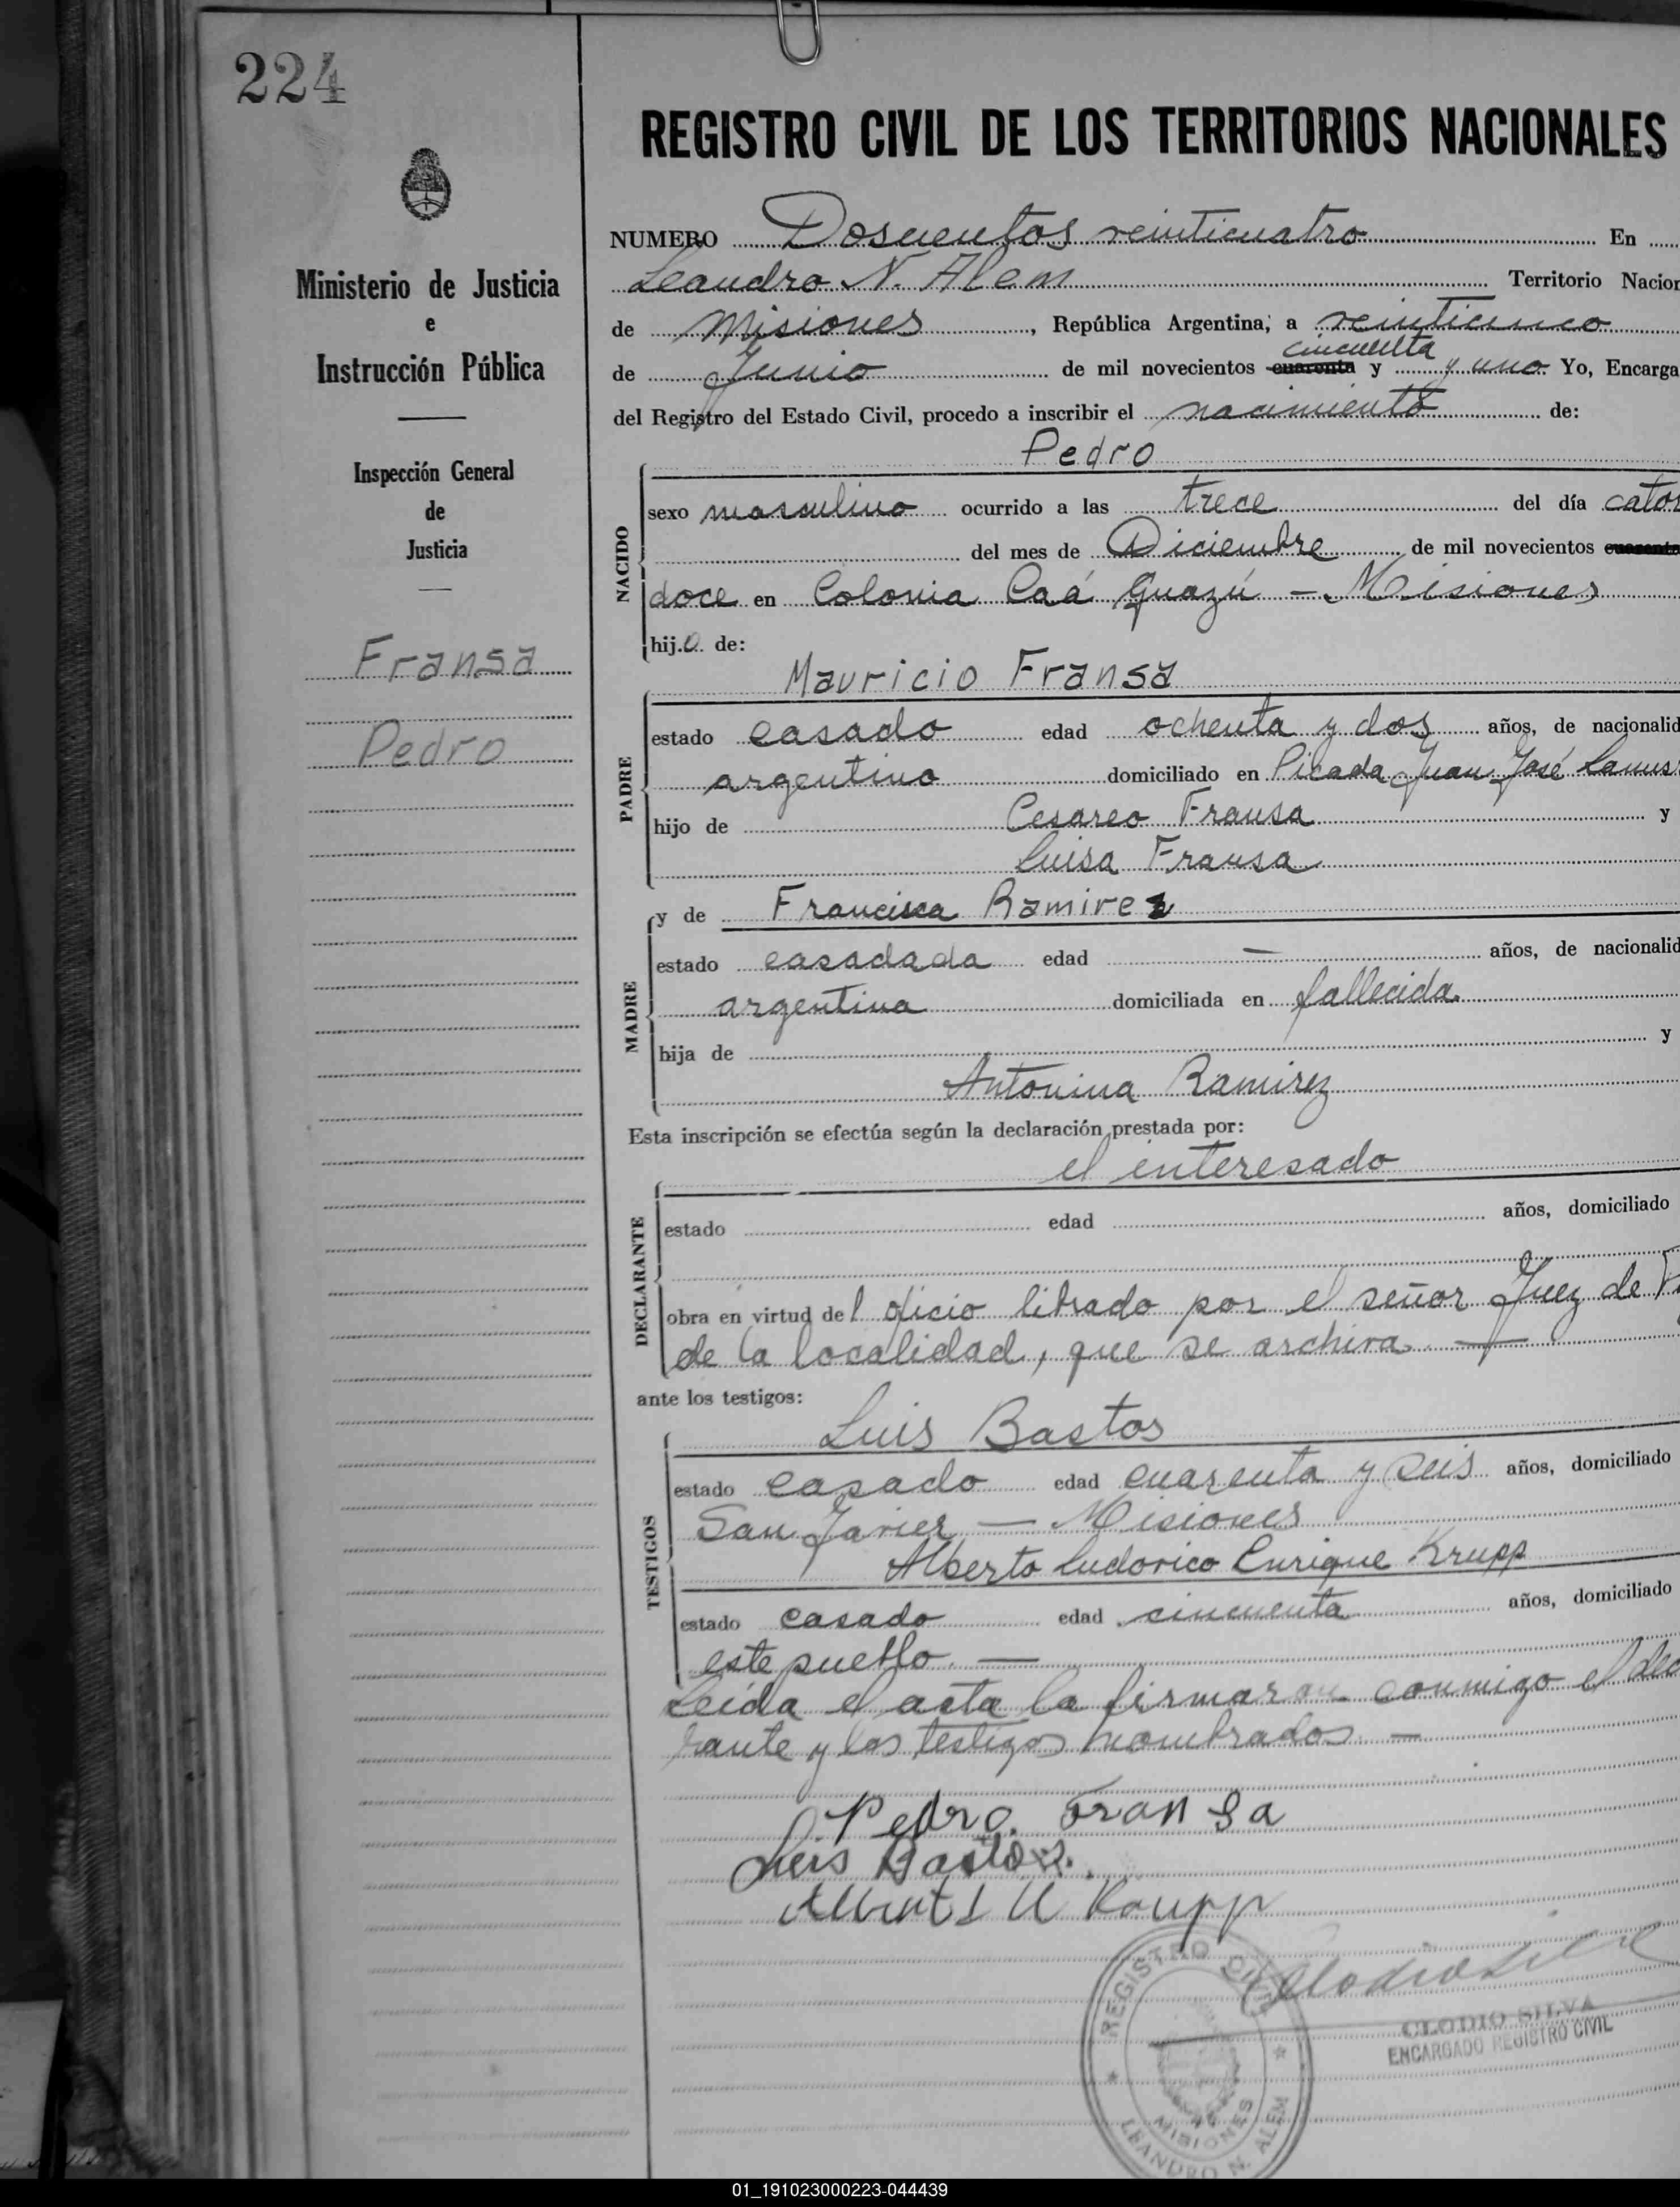 224
REGISTRO CIVIL DE LOS TERRITORIOS NACIONALES
Ministerio de Justicia
e
Instrucción Pública
Inspección General
de
Justicia
Fransa
Pedro
NUMERO Doscientos veinticuatro En
Leandro N. Alem Territorio Nacion
de Misiones, República Argentina, a veinticinco
de Junio de mil novecientos cuarenta cincuenta y y uno Yo, Encarga
del Registro del Estado Civil, procedo a inscribir el nacimiento de:
Pedro
NACIDO
sexo masculino ocurrido a las trece del día cator
del mes de Diciembre de mil novecientos cuarenta
doce en Colonia Caá Guazú - Misiones
hijo de:
Mauricio Fransa
PADRE
estado casado edad ochenta y dos años, de nacionalid
argentino domiciliado en Picada Juan José Lanus
hijo de Cesareo Fransa y
Luisa Fransa
y de Francisca Ramirez
MADRE
estado casadada edad — años, de nacionalid
argentina domiciliada en fallecida
hija de y
Antonina Ramirez
Esta inscripción se efectúa según la declaración prestada por:
el interesado
DECLARANTE
estado edad años, domiciliado
obra en virtud del oficio librado por el señor Juez de
de la localidad, que se archiva. —
ante los testigos:
Luis Bastos
TESTIGOS
estado casado edad cuarenta y seis años, domiciliado
San Javier — Misiones
Alberto Ludovico Enrique Krupp
estado casado edad cincuenta años, domiciliado
este pueblo. —
Leida el acta la firmaron conmigo el dec
rante y los testigos nombrados. —
Pedro Fransa
Luis Bastos
Krupp
Clodio Silva
CLODIO SILVA
ENCARGADO REGISTRO CIVIL
REGISTRO CIVIL
MISIONES
LEANDRO N. ALEM
01_191023000223-044439